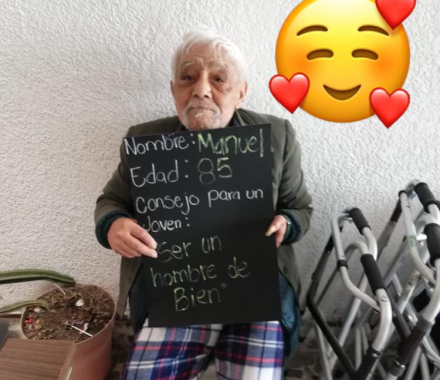 Nombre: Manuel
Edad: 85
Consejo para un
Joven:
"Ser un
hombre de
Bien"